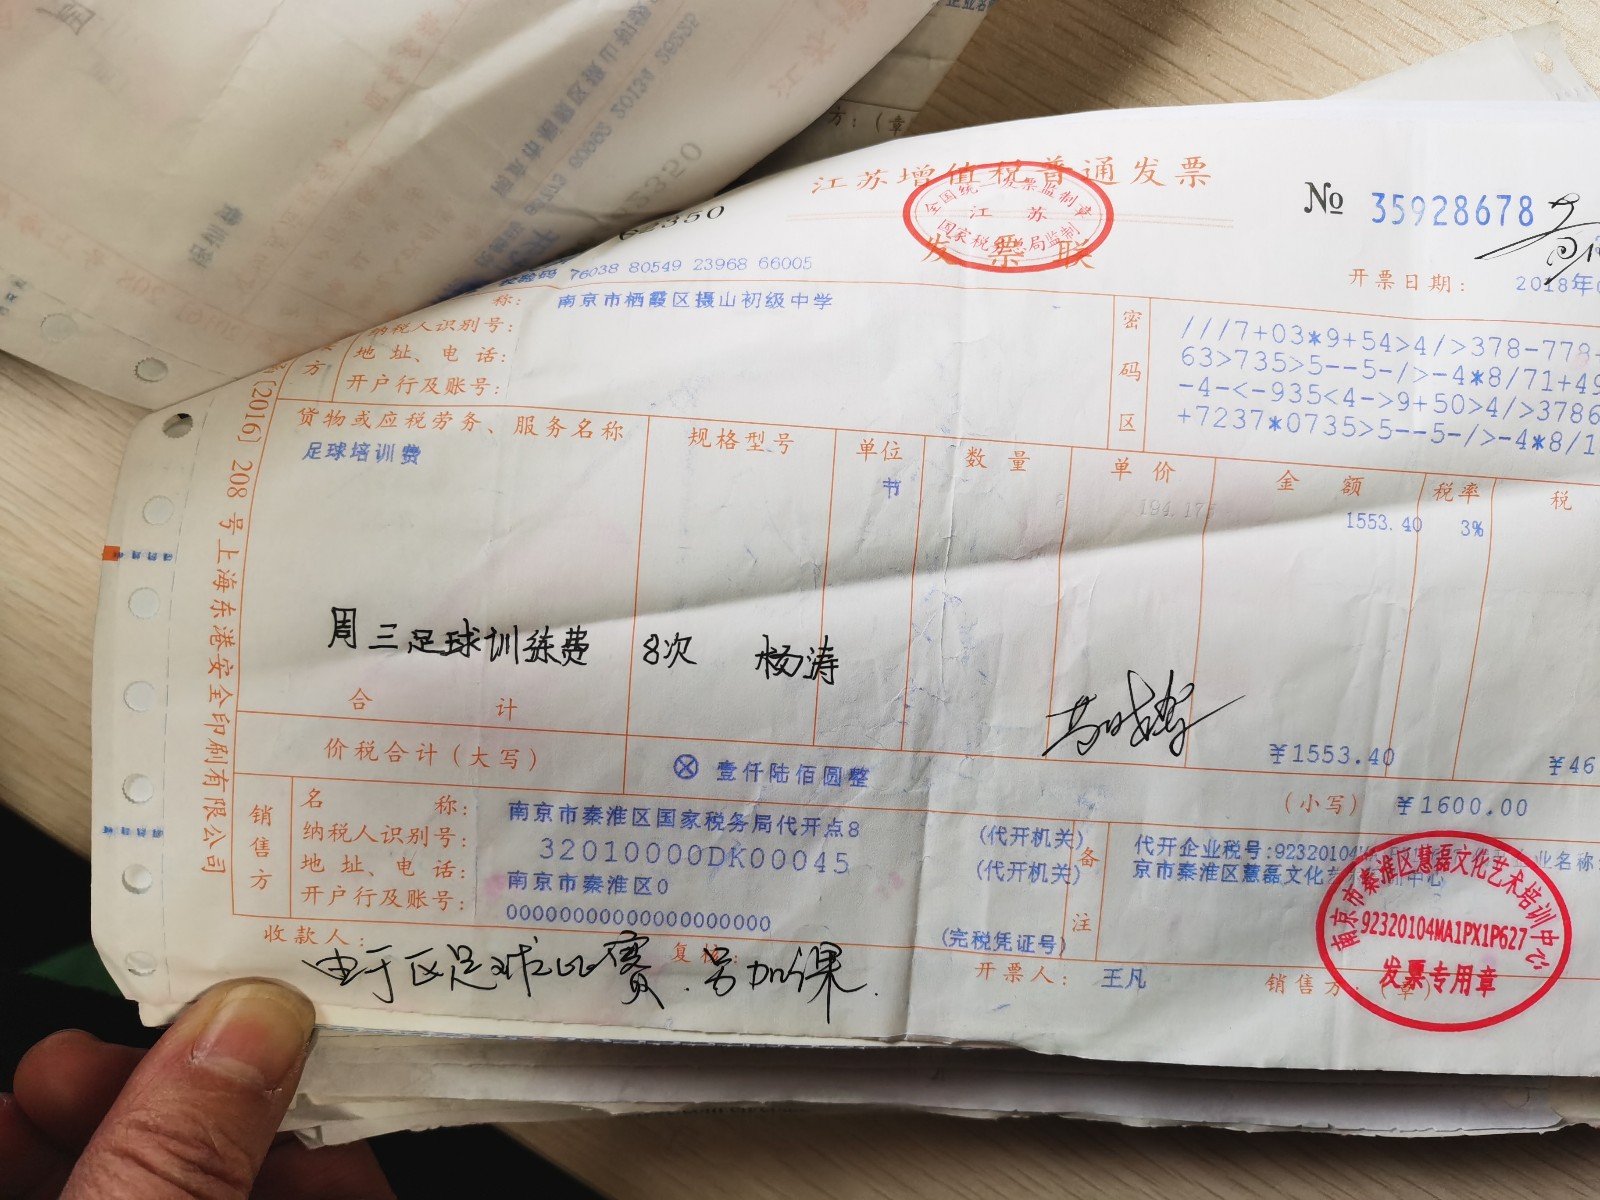 江苏增值税普通发票
全国统一发票监制章
江 苏
国家税务总局监制
发 票 联
№ 35928678
校验码 76038 80549 23968 66005
开票日期： 2018年
称： 南京市栖霞区摄山初级中学
纳税人识别号：
地 址、电 话：
开户行及账号：
方
密码区
///7+03*9+54>4/>378-778-
63>735>5--5-/>-4*8/71+49
-4-<-935<4->9+50>4/>3786
+7237*0735>5--5-/>-4*8/1
货物或应税劳务、服务名称 规格型号 单位 数 量 单 价 金 额 税率 税
足球培训费 节 8 194.175 1553.40 3%
周三足球训练费 8次 杨涛
合 计 ￥1553.40 ￥46
价税合计（大写） ⊗ 壹仟陆佰圆整 （小写） ￥1600.00
销售方
名 称： 南京市秦淮区国家税务局代开点8 (代开机关)
纳税人识别号： 32010000DK00045 (代开机关)
地 址、电 话： 南京市秦淮区0
开户行及账号： 00000000000000000000 (完税凭证号)
备注
代开企业税号:92320104M 企业名称:
京市秦淮区慧磊文化艺术培训中心
南京市秦淮区慧磊文化艺术培训中心
92320104MA1PX1P627
发票专用章
收款人： 复核： 开票人： 王凡 销售方：（章）
由于区足球比赛.另加课.
(2016) 208 号上海东港安全印刷有限公司